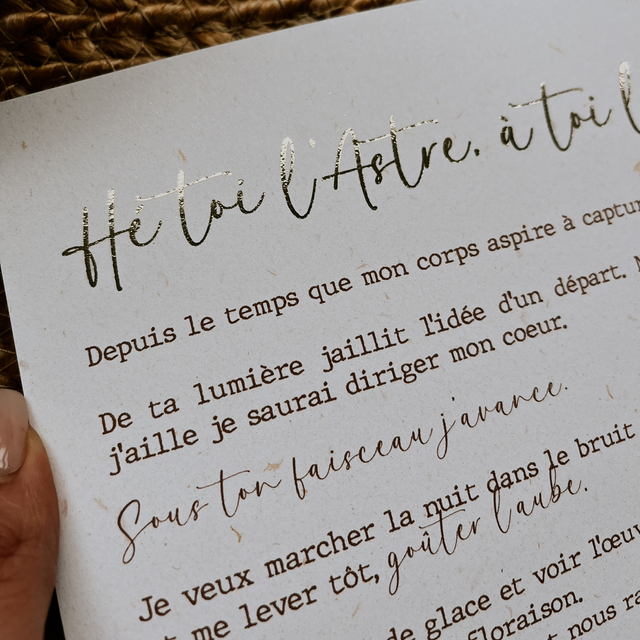 Hé toi l'Astre, à toi
Depuis le temps que mon corps aspire à
De ta lumière jaillit l'idée d'un départ.
j'aille je saurai diriger mon coeur.
Sous ton faisceau j'avance.
Je veux marcher la nuit dans le bruit
me lever tôt, goûter l'aube.
de glace et voir
floraison.
nous